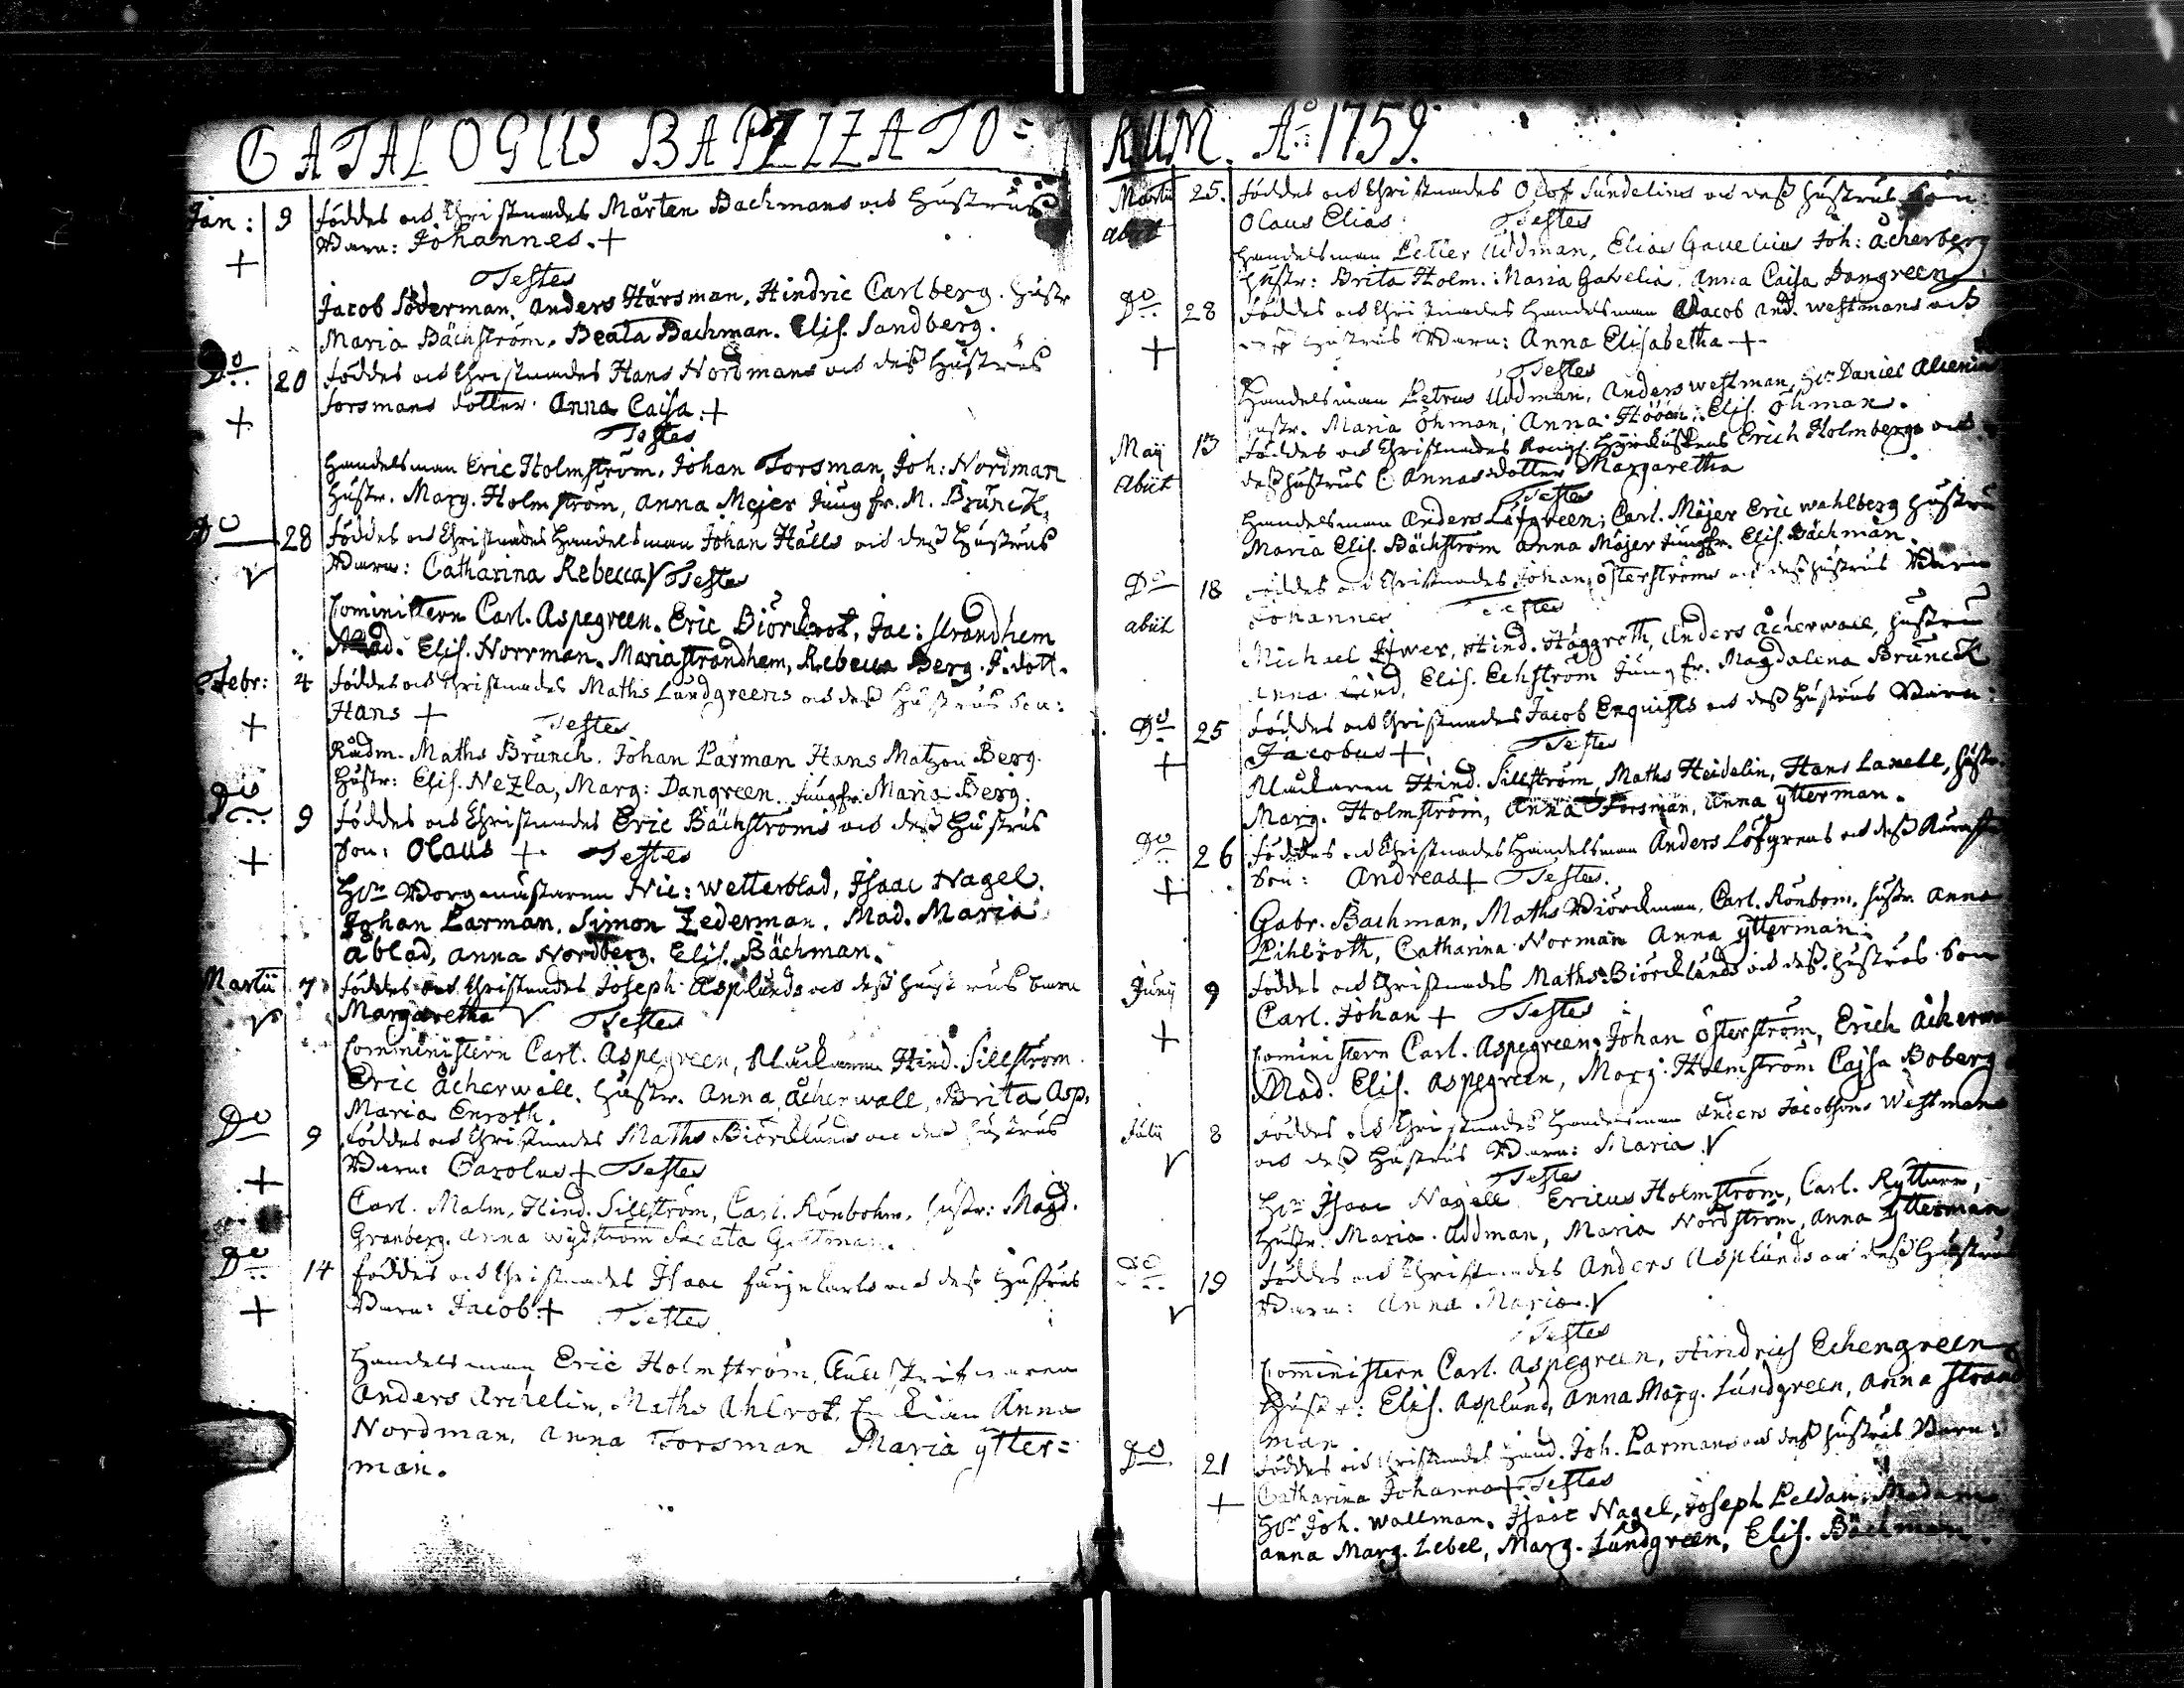 CATALOGUS BAPTIZATO=
Jan: 9 Föddes och Christnades Mårten Bachmans och Hustrus
+ Barn: Johannes. +
Testes
Jacob Söderman, Anders Hårsman, Hindric Carlberg. Hustr
Maria Bächström, Beata Bachman. Elis. Sandberg.
Do 20 Föddes och Christnades Hans Nordmans och deß Hustrus
+ Forsmans dotter Anna Caisa. +
Testes
Handelsman Eric Holmström, Johan Forsman, Joh: Nordman
Hustr. Marg. Holmström, Anna Mejer Jungfr. M. Brunck.
Do 28 Föddes och Christnades Handelsman Johan Hälls och deß Hustrus
V Barn: Catharina Rebecca V Testes
Cominstern Carl. Aspegreen. Eric Biörckrot, Jac: Strandhem
Mad. Elis. Norrman. Maria Strandhem, Rebecca Berg. J. dott.
Febr: 4 Föddes och Christnades Maths Lundgreens och deß Hustrus Son:
+ Hans + Testes
Rådm. Maths Brunch. Johan Parman Hans Matzon Berg.
Hustr: Elis. Nezla, Marg: Dangreen. Jungfr. Maria Berg.
Do 9 Föddes och Christnades Eric Bächströms och deß Hustrus
+ Son: Olaus + Testes
Hr Borgmästaren Nic: Wetterblad, Isaac Nagel.
Johan Parman. Simon Zederman. Mad. Maria
Åblad, Anna Nordberg. Elis. Bächman.
Martii 7 Föddes och Christnades Joseph Asplunds och deß Hustrus barn
V Margaretha V Testes
Comministern Carl. Aspegreen, Klåckaren Hind. Sillström
Eric Åcherwall. Hustr. Anna Åcherwall, Brita Asp.
Maria Enroth.
Do 9 Föddes och Christnades Maths Biörcklunds och deß Hustrus
+ Barn: Carolus + Testes
Carl. Malm, Hind. Sillström, Carl. Rönbohm. Hustr: Magd.
Granberg. Anna Wydström
Do 14 Föddes och Christnades Isaac och deß Hustrus
+ Barn: Jacob + Testes
Handelsman Eric Holmström,
Anders Archelin, Maths Ahlrot, Anna
Nordman. Anna Forsman Maria Ytter=
man.
RUM. Ao 1759.
Martii 25. Föddes och Christnades Olof Sundelins och deß Hustrus Son
abiit Olaus Elias Testes
Handelsman Petter Uddman, Elias Gavelius Joh: Åcherberg
Hustr: Brita Holm. Maria Gavelia. Anna Caisa Dangreen
Do 28 Föddes och Christnades Handelsman Jacob And. Westmans och
+ deß Hustrus Barn: Anna Elisabetha +
Testes
Handelsman Petrus Uddman, Anders Westman, Hr Daniel Alcenius
Hustr. Maria Öhman, Anna Höök. Elis. Öhman.
Maij 13 Föddes och Christnades Erich Holmbergs och
abiit deß Hustrus C. Annas dotter Margaretha
Testes
Handelsman Anders Löfgreen, Carl. Mejer Eric Wahlberg Hustru
Maria Elis. Bächström Anna Mejer Jungfr. Elis. Bächman.
Do 18 Föddes och Christnades Johan Österströms och deß Hustrus Barn
abiit Johannes Testes
Michael Ijwer, Hind. Häggroth, Anders Åcherwall, Hustru
Anna Lind, Elis. Echström Jungfr. Magdalena Brunck
Do 25 Föddes och Christnades Jacob Enquists och deß Hustrus Barn:
+ Jacobus + Testes
Klåckaren Hind. Sillström, Maths Heidelin, Hans Lanell, Hustr.
Marg. Holmström, Anna Forsman, Anna Ytterman.
Do 26 Föddes och Christnades Handelsman Anders Löfgrens och deß
+ Son: Andreas + Testes.
Gabr. Bachman, Maths Biörckman, Carl. Rönbom. Hustr. Anna
Pihlroth, Catharina Norman Anna Ytterman
Junij 9 Föddes och Christnades Maths Biörcklunds och deß Hustrus Son
+ Carl. Johan + Testes
Cominstern Carl. Aspegreen. Johan Österström, Erich Åcherw
Mad. Elis. Aspegreen, Marg: Holmström Cajsa Boberg
Julij 8 Föddes och Christnades Handelsman Anders Jacobsons Westmans
V och deß Hustrus Barn: Maria. V
Testes
Hr Isaac Nagell Ericus Holmström, Carl. Rytturn,
Hustr. Maria Uddman, Maria Nordström, Anna Ytterman
Do 19 Föddes och Christnades Anders Asplunds och deß Hustrus
V Barn: Anna Maria. V
Testes
Cominstern Carl. Aspegreen, Hindrich Echengreen
Hustr: Elis. Asplund, Anna Marg. Lundgreen, Anna Strand
man
Do 21 Föddes och Christnades Hand. Joh. Parmans och deß Hustrus Barn:
+ Catharina Johanna + Testes
Hr Joh. Wallman. Isaac Nagel, Joseph Peldan. Madam
Anna Marg. Lebel, Marg. Lundgreen, Elis. Bächman.